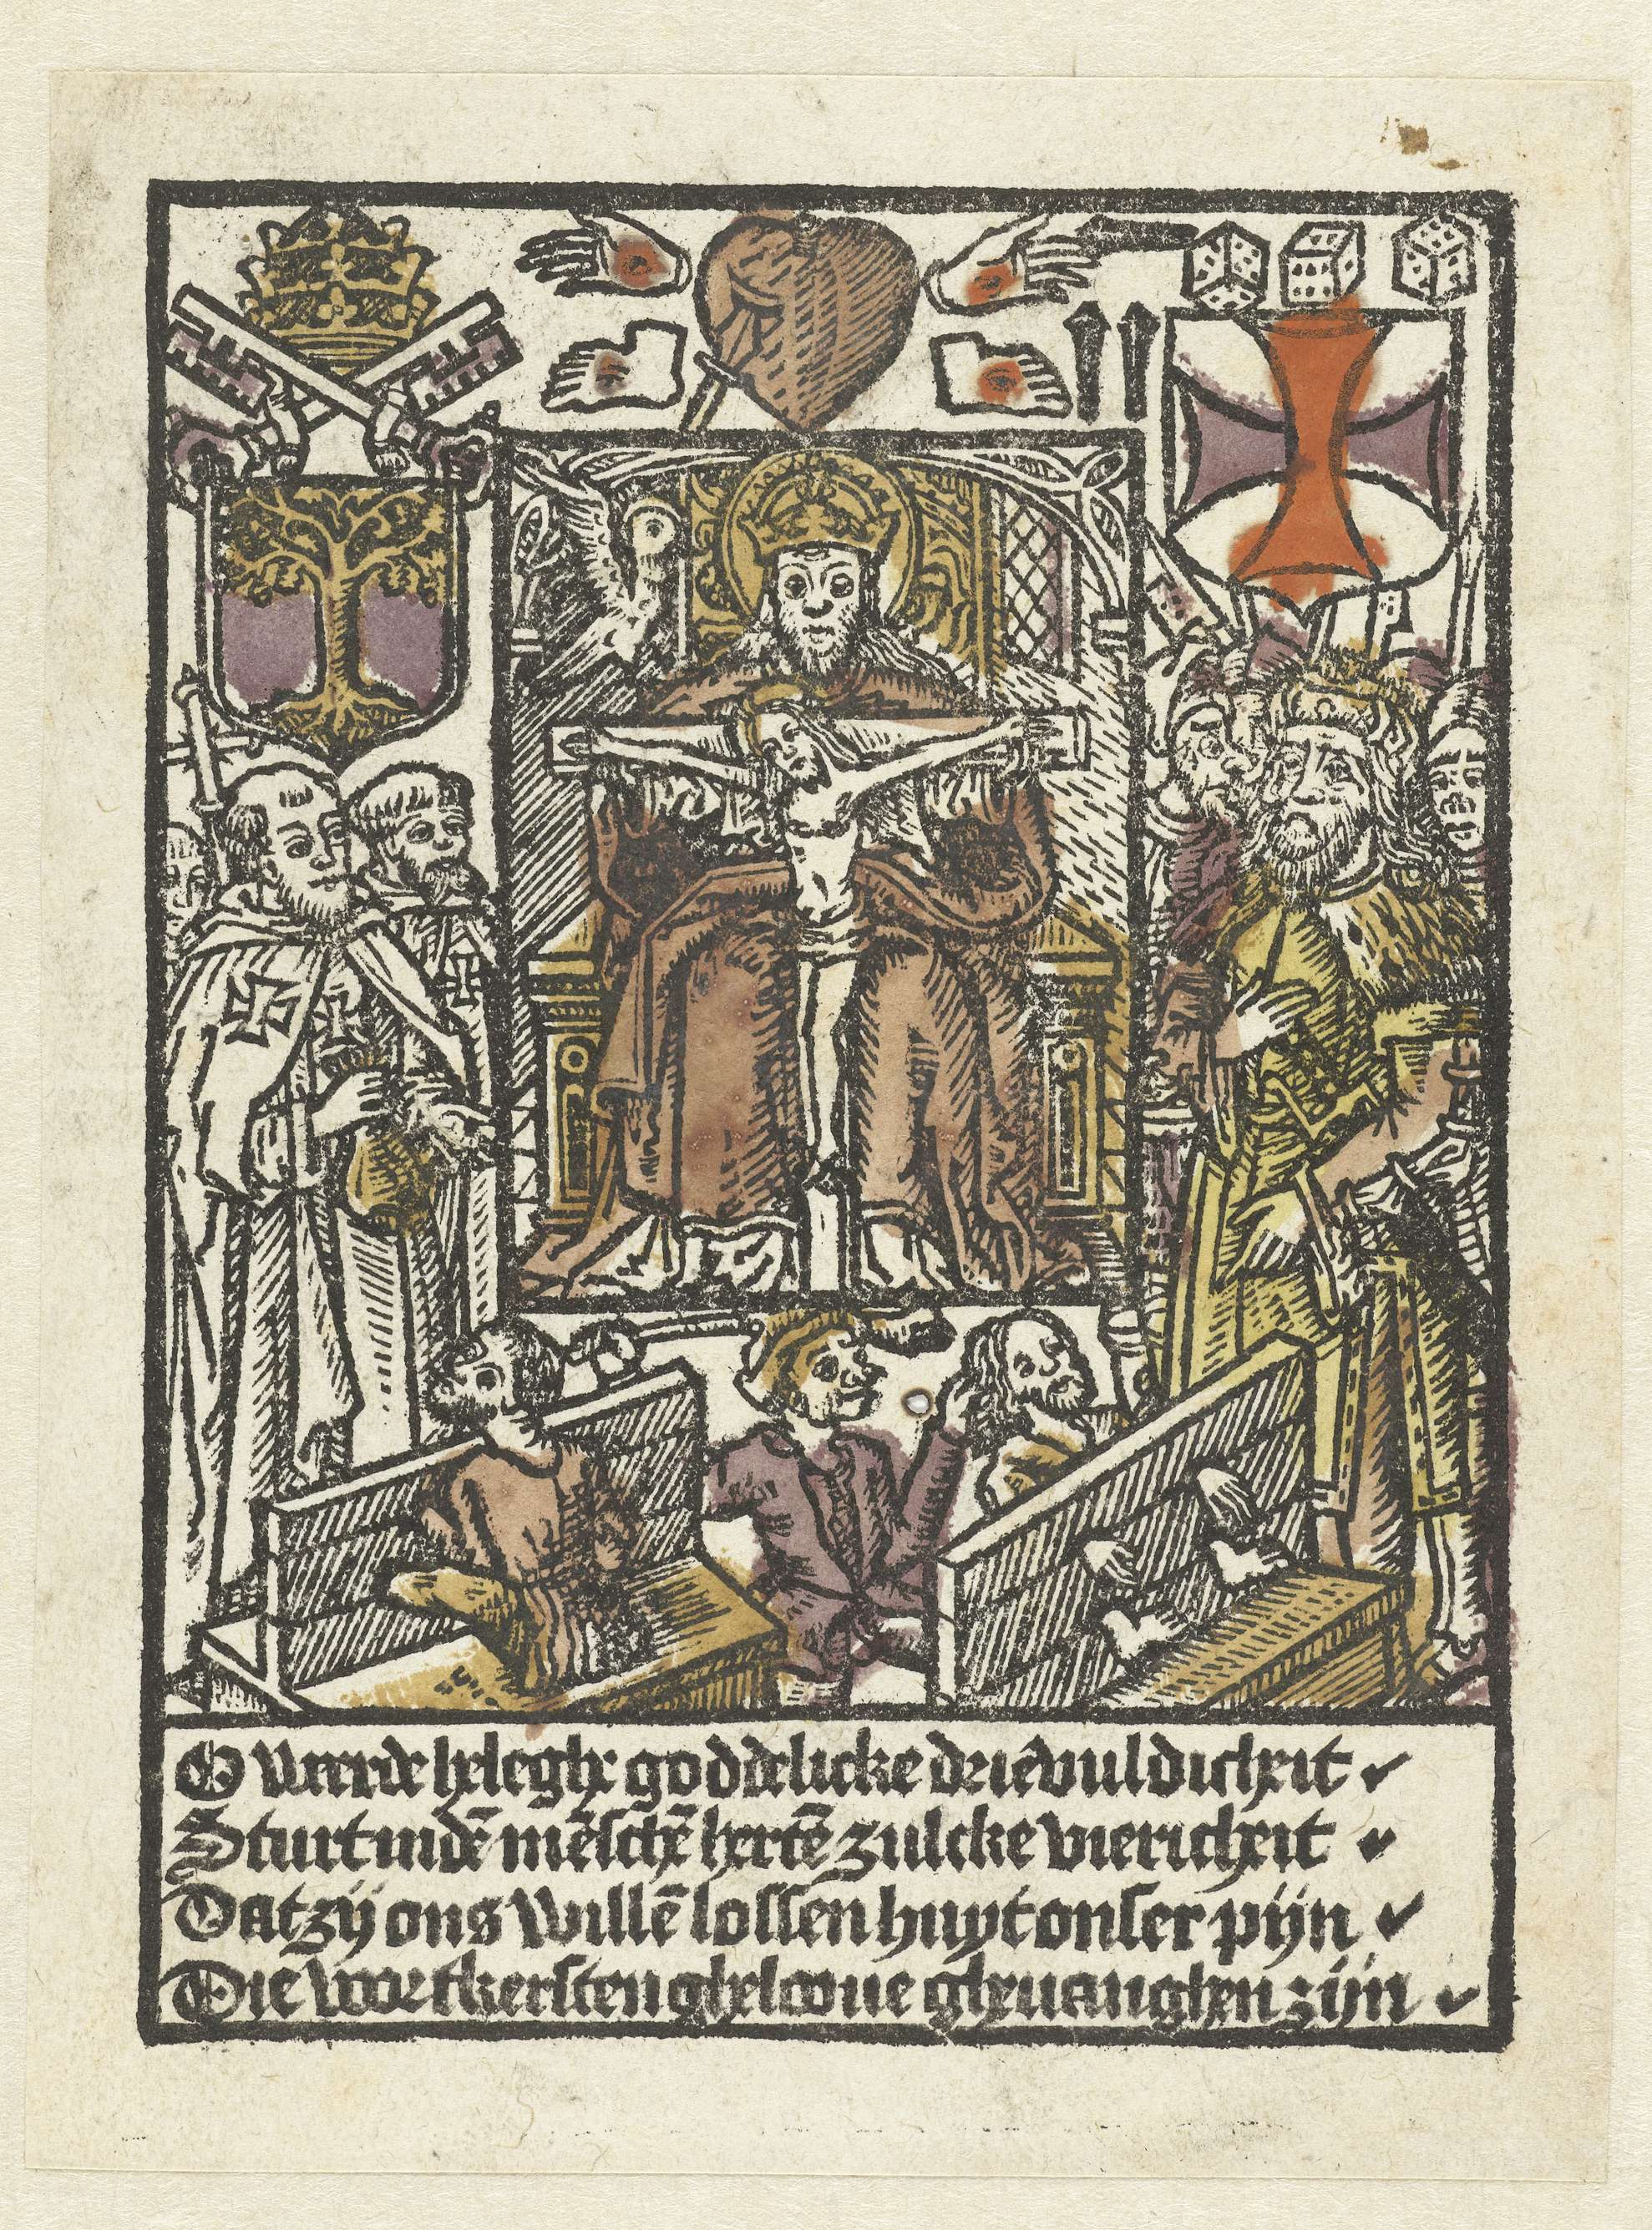 O weerde heleghe goddelicke drievuldicheit
Sturt in dē mēschē hertē zulcke viericheit
Dat zÿ ons willē lossen huyt onser pijn
Die voor tkersten ghelooue gheuanghen zijn